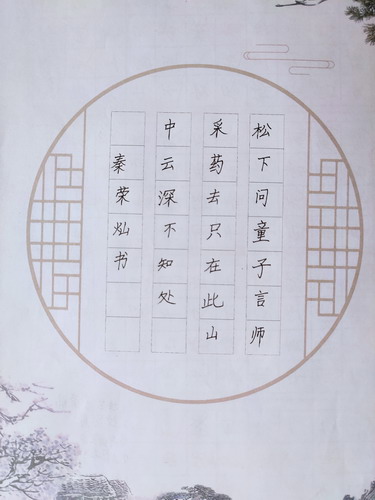 松下问童子言师
采药去只在此山
中云深不知处
秦荣灿书